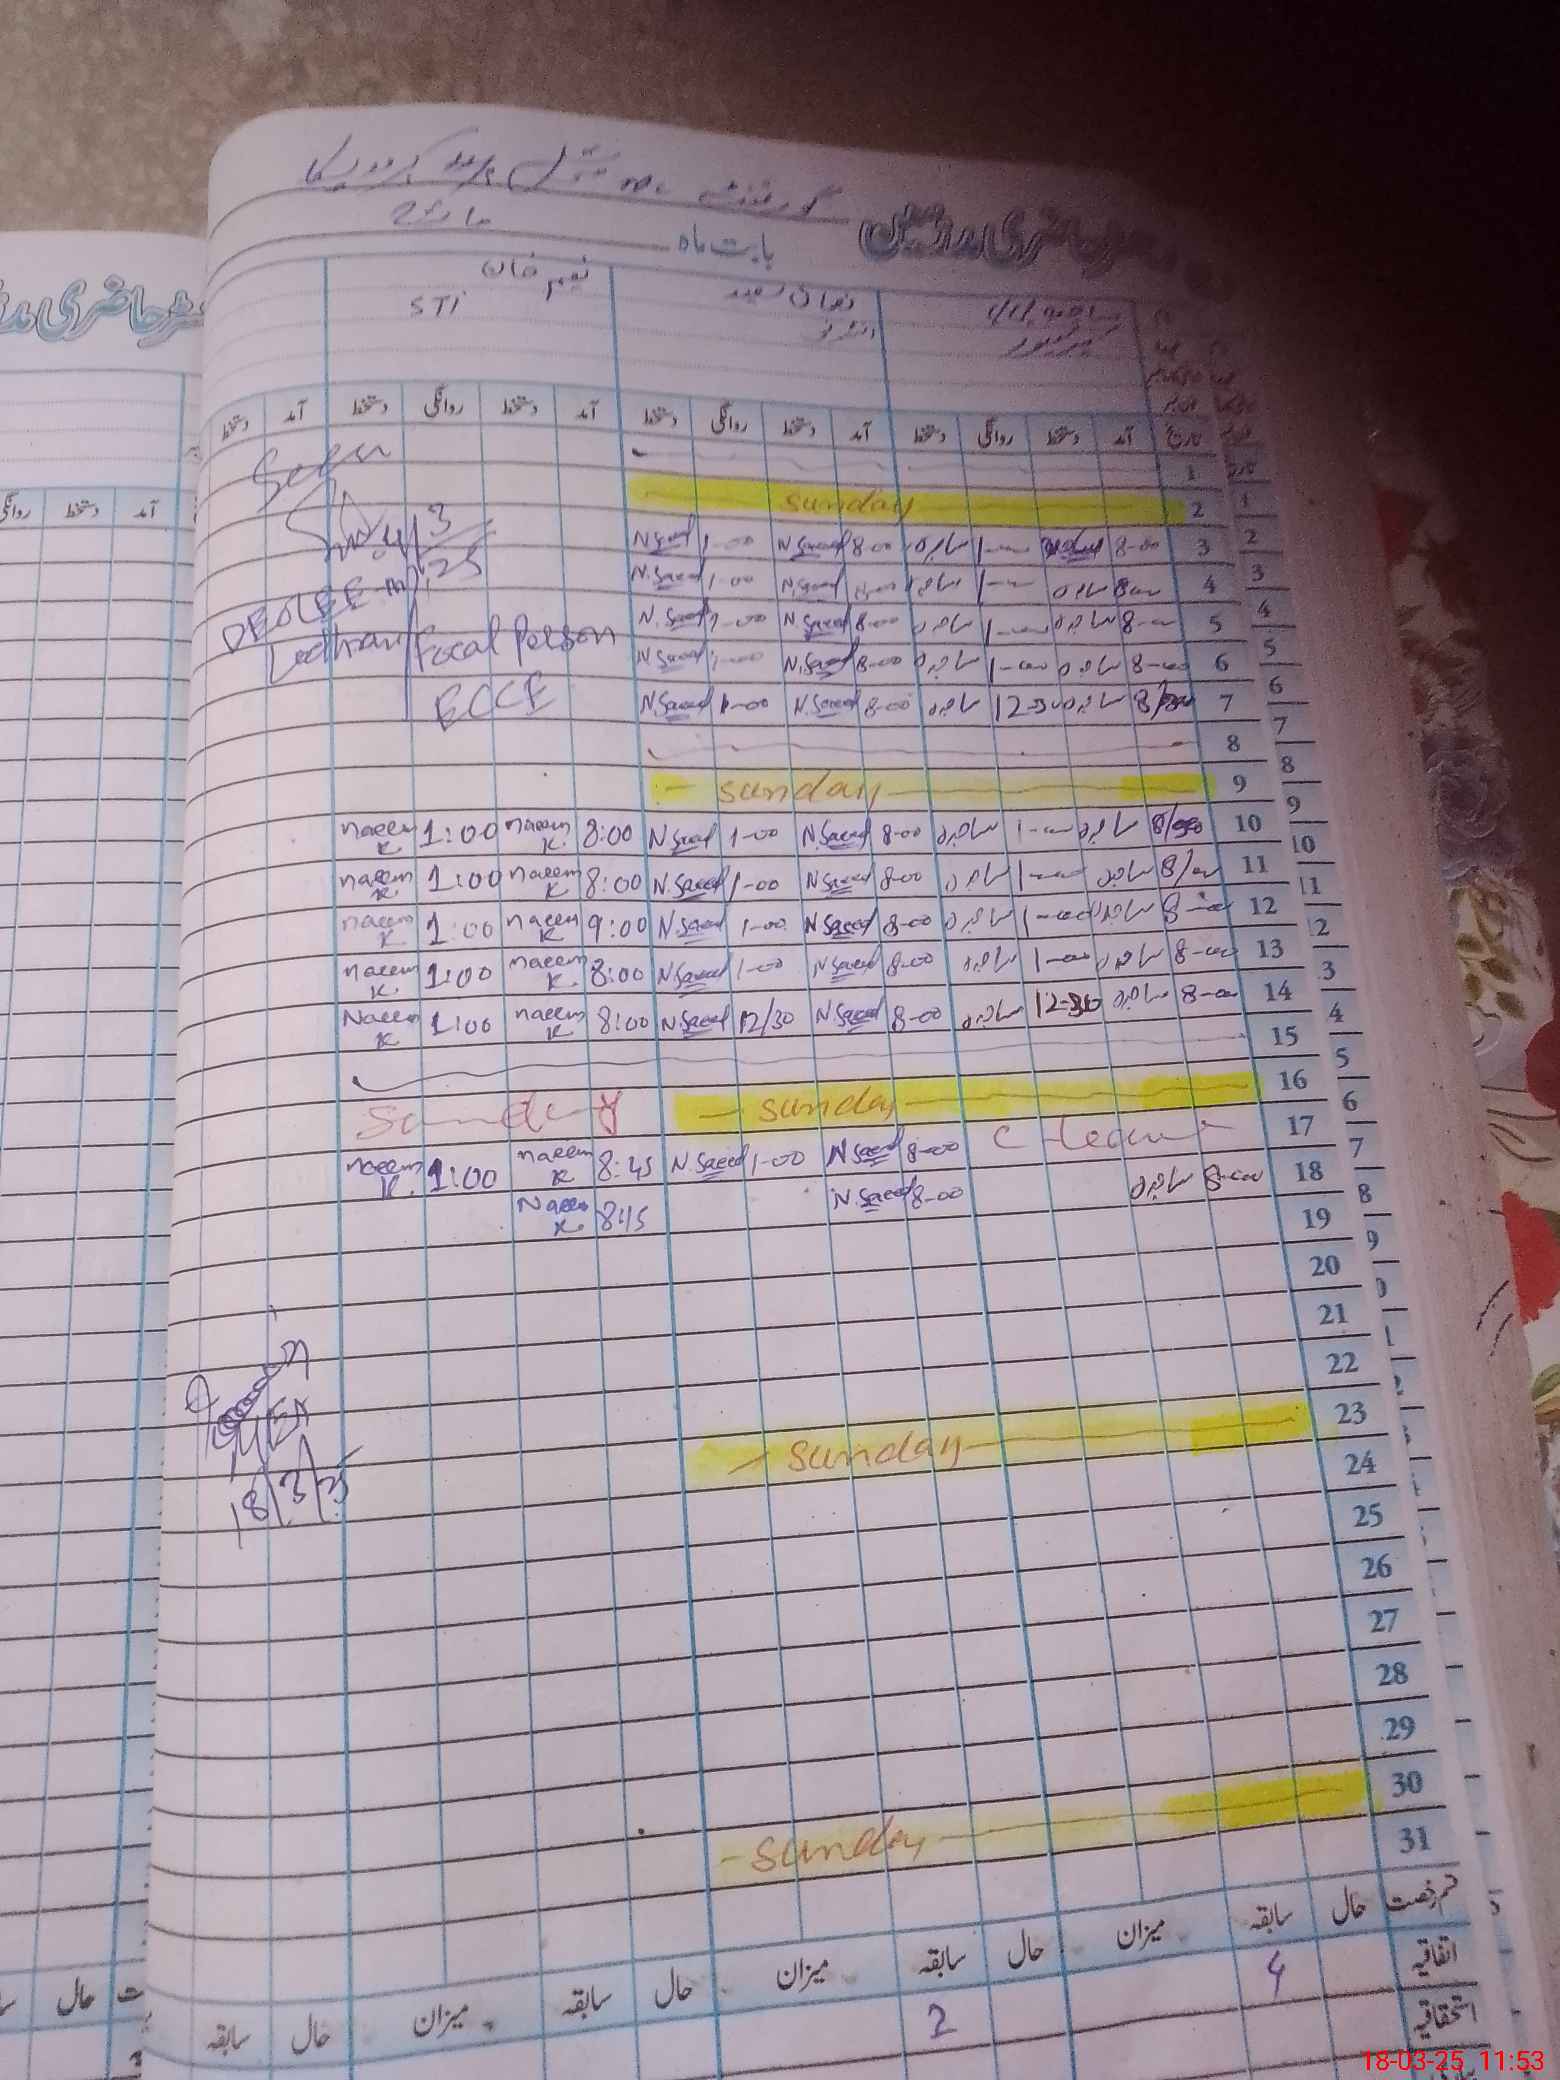 بابت ماہ مارچ
نعیم خان
STi
تاریخ آمد دستخط روانگی دستخط آمد دستخط روانگی دستخط آمد دستخط روانگی دستخط آمد دستخط
1
2 sunday
3 8-00 1-00 ساجدہ 8-00 N.Saeed 1-00 N.Saeed
4 8-00 ساجدہ 1-00 ساجدہ 8-00 N.Saeed 1-00 N.Saeed
5 8-00 ساجدہ 1-00 ساجدہ 8-00 N.Saeed 1-00 N.Saeed
6 8-00 ساجدہ 1-00 ساجدہ 8-00 N.Saeed 1-00 N.Saeed
7 ساجدہ 12-30 ساجدہ 8-00 N.Saeed 1-00 N.Saeed
Seen
4/3
25
DEO(EE-m)
Lodhran/Focal Person
ECCE
8
9 sunday
10 ساجدہ 1-00 ساجدہ 8-00 N.Saeed 1-00 N.Saeed 8:00 naeem K. 1:00 naeem K.
11 8/00 ساجدہ 1-00 ساجدہ 8-00 N.Saeed 1-00 N.Saeed 8:00 naeem K 1:00 naeem K.
12 8-00 ساجدہ 1-00 ساجدہ 8-00 N.Saeed 1-00 N.Saeed 9:00 naeem K 1:00 naeem K
13 8-00 ساجدہ 1-00 ساجدہ 8-00 N.Saeed 1-00 N.Saeed 8:00 naeem K. 1:00 naeem K.
14 8-00 ساجدہ 12-30 ساجدہ 8-00 N.Saeed 12/30 N.Saeed 8:00 naeem K. 1:00 Naeem K
15
16 sunday Sunday
17 C-leave 8-00 N.Saeed 1-00 N.Saeed 8:45 naeem K 1:00 naeem K.
18 8-00 ساجدہ 8-00 N.Saeed 8:45 Naeem K.
19
20
21
22
23 sunday
24
25
26
27
28
29
30 sunday
31
18/3/25
قسم رخصت حال سابقہ میزان حال سابقہ میزان حال سابقہ میزان حال سابقہ
اتفاقیہ 4 2
استحقاقیہ
18-03-25 11:53